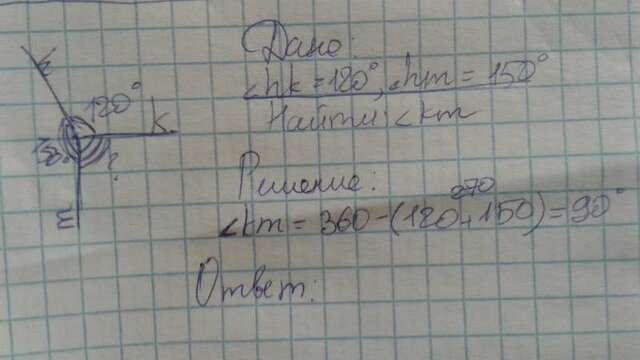 Дано:
<hk = 120°, <hm = 150°
Найти: <km
Решение:
270
<km = 360 - (120 + 150) = 90°
Ответ:
h
120°
k
150°
?
m